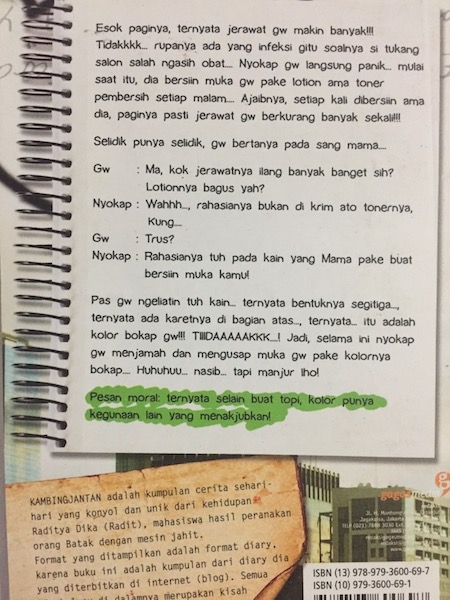 Esok paginya, ternyata jerawat gw makin banyak!!!
Tidakkkk... rupanya ada yang infeksi gitu soalnya si tukang
salon salah ngasih obat.... Nyokap gw langsung panik... mulai
saat itu, dia bersiin muka gw pake lotion ama toner
pembersih setiap malam.... Ajaibnya, setiap kali dibersiin ama
dia, paginya pasti jerawat gw berkurang banyak sekali!!!
Selidik punya selidik, gw bertanya pada sang mama....
Gw : Ma, kok jerawatnya ilang banyak banget sih?
Lotionnya bagus yah?
Nyokap : Wahhh..., rahasianya bukan di krim ato tonernya,
Kung....
Gw : Trus?
Nyokap : Rahasianya tuh pada kain yang Mama pake buat
bersiin muka kamu!
Pas gw ngeliatin tuh kain... ternyata bentuknya segitiga...,
ternyata ada karetnya di bagian atas..., ternyata... itu adalah
kolor bokap gw!!! TIIIDAAAAAKKK...! Jadi, selama ini nyokap
gw menjamah dan mengusap muka gw pake kolornya
bokap.... Huhuhuu... nasib... tapi manjur lho!
Pesan moral: ternyata selain buat topi, kolor punya
kegunaan lain yang menakjubkan!
KAMBINGJANTAN adalah kumpulan cerita sehari-
hari yang konyol dan unik dari kehidupan
Raditya Dika (Radit), mahasiswa hasil peranakan
orang Batak dengan mesin jahit.
Format yang ditampilkan adalah format diary,
karena buku ini adalah kumpulan dari diary dia
yang diterbitkan di internet (blog). Semua
di dalamnya merupakan kisah
ISBN (13) 978-979-3600-69-7
ISBN (10) 979-3600-69-1